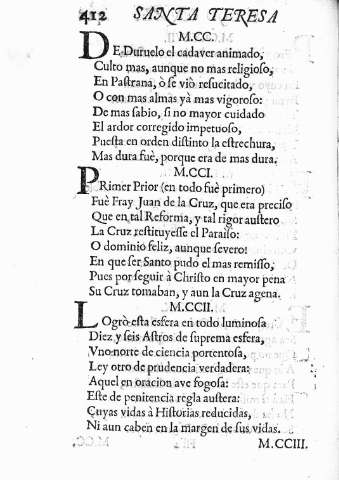 412 SANTA TERESA
M.CC.
DE Duruelo el cadaver animado,
Culto mas, aunque no mas religioso,
En Pastrana, ò se viò resucitado,
O con mas almas yà mas vigoroso:
De mas sabio, si no mayor cuidado
El ardor corregido impetuoso,
Puesta en orden distinto la estrechura,
Mas dura fuè, porque era de mas dura.
M.CCI.
PRimer Prior (en todo fuè primero)
Fuè Fray Juan de la Cruz, que era preciso
Que en tal Reforma, y tal rigor austero
La Cruz restituyesse el Paraiso:
O dominio feliz, aunque severo!
En que ser Santo pudo el mas remisso,
Pues por seguir à Christo en mayor pena
Su Cruz tomaban, y aun la Cruz agena.
M.CCII.
LOgrò esta esfera en todo luminosa
Diez y seis Astros de suprema esfera,
Vno norte de ciencia portentosa,
Ley otro de prudencia verdadera:
Aquel en oracion ave fogosa:
Este de penitencia regla austera:
Cuyas vidas à Historias reducidas,
Ni aun caben en la margen de sus vidas.
M.CCIII.